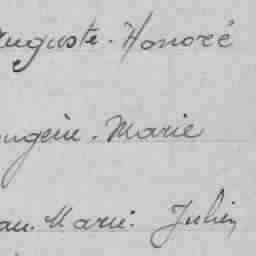 Auguste-Honoré
ugène-Marie
an-Marie-Julien